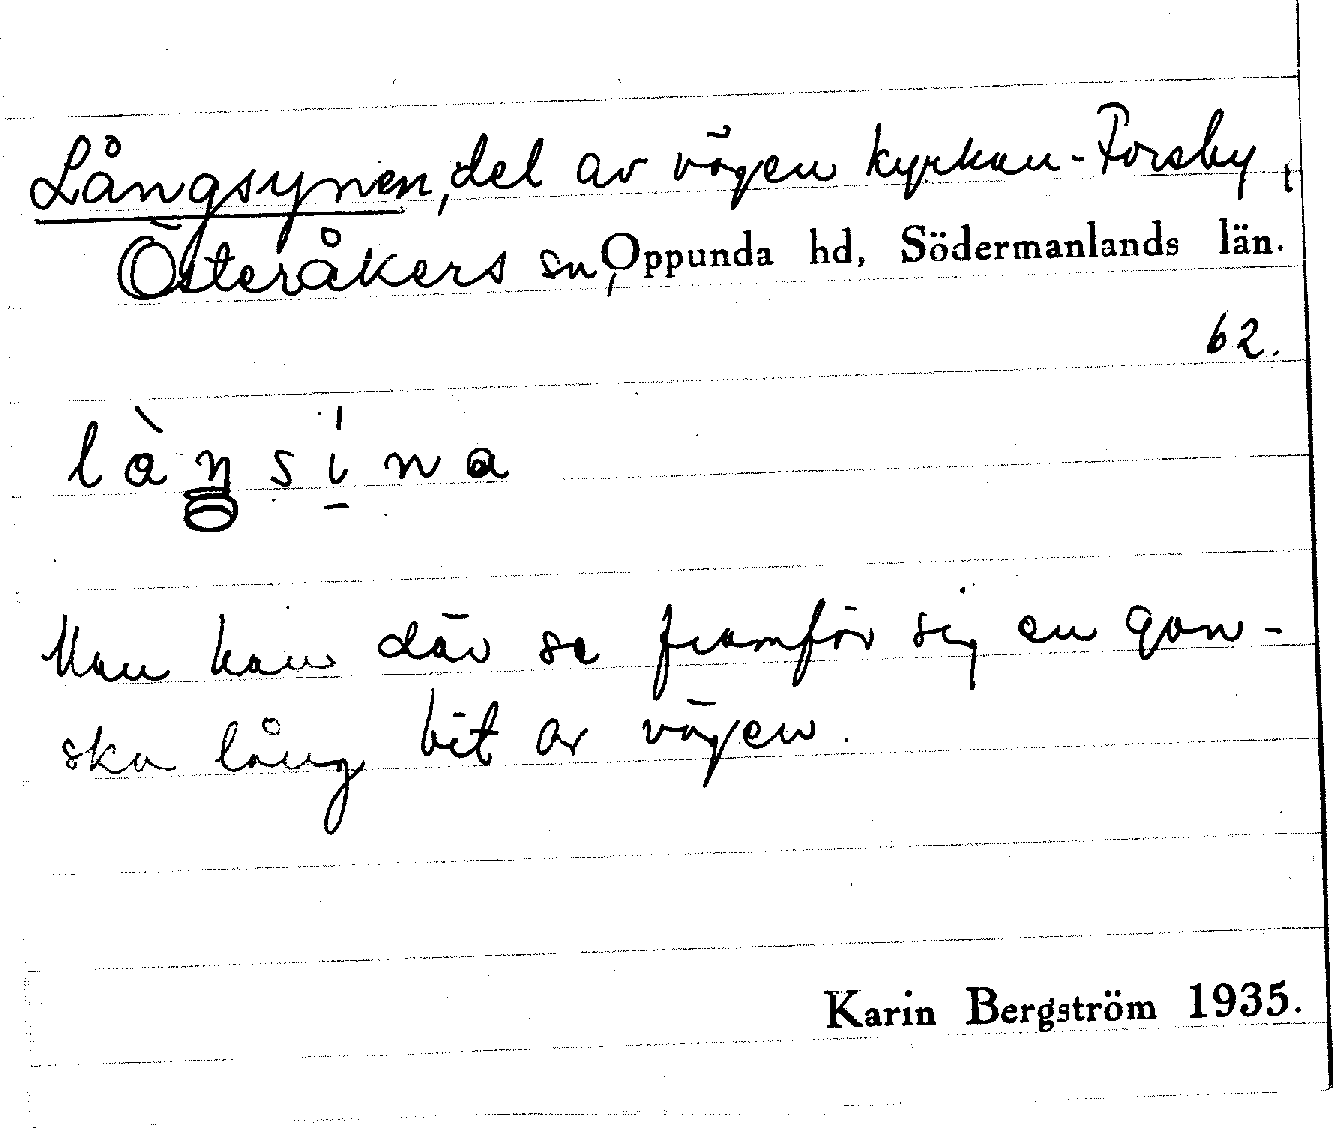 Långsynen, del av vägen kyrkan-Forsby,
Österåkers sn, Oppunda hd, Södermanlands län.
62.
làŋsina
Man kan där se framför sig en gan-
ska lång bit av vägen.
Karin Bergström 1935.